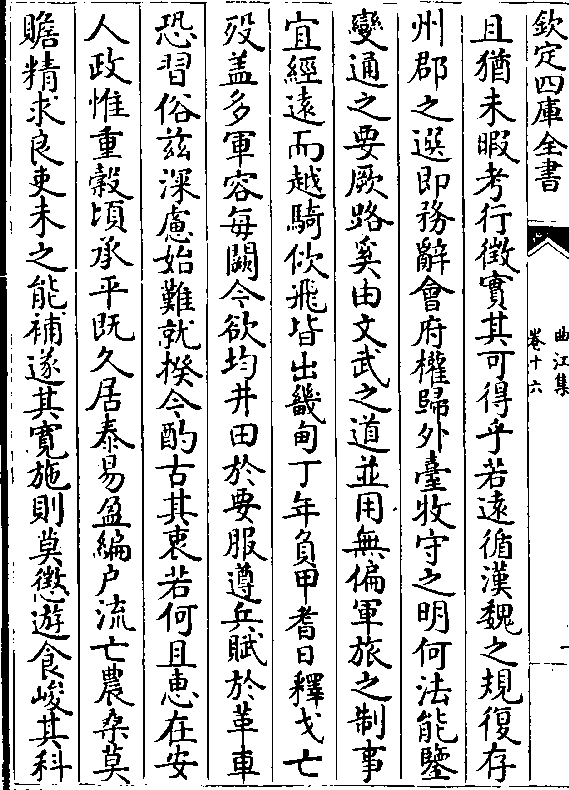 欽定四庫全書
曲江集
卷十六
且猶未暇考行徵實其可得乎若遠循漢魏之規復存
州郡之選即務辭會府權歸外臺牧守之明何法能鑒
變通之要厥路奚由文武之道並用無偏軍旅之制事
宜經遠而越騎佽飛皆出畿甸丁年負甲耆日釋戈亡
殁盖多軍容每闕今欲均井田於要服遵兵賦於革車
恐習俗兹深慮始難就揆今酌古其衷若何且惠在安
人政惟重穀頃承平既久居泰易盈編户流亡農桑莫
贍精求良吏未之能補遂其寛施則莫懲遊食峻其科